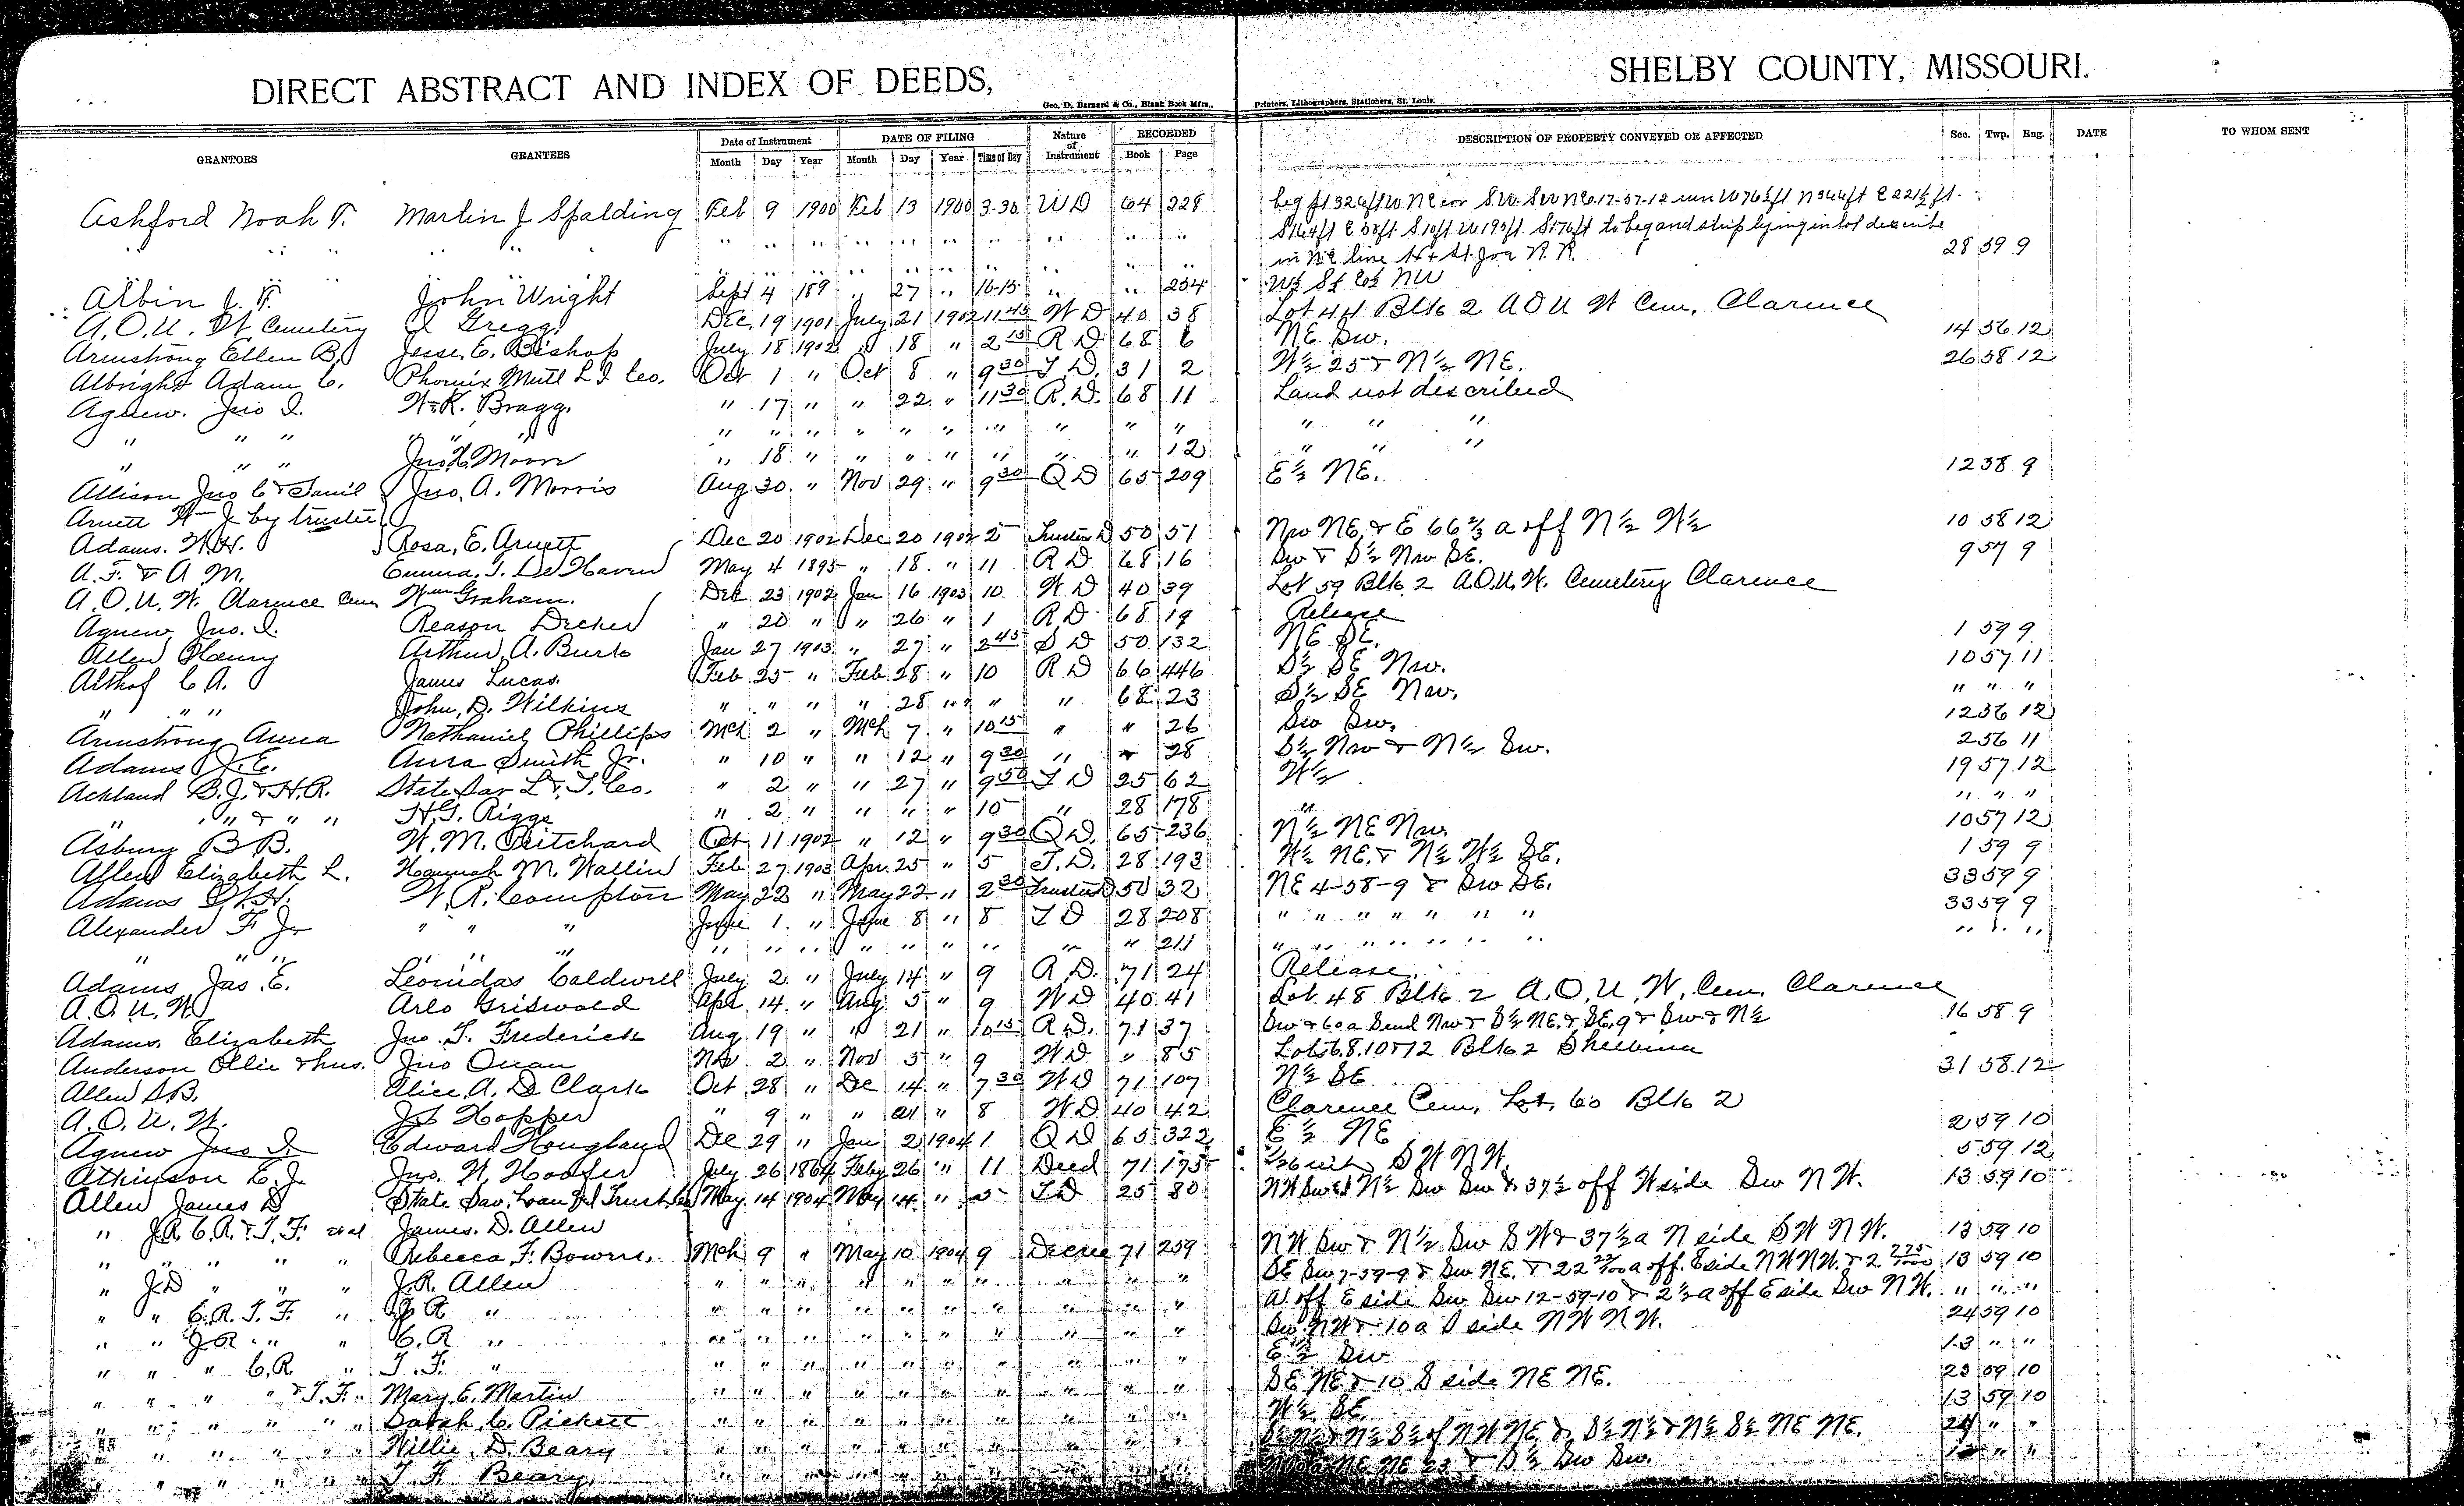 DIRECT ABSTRACT AND INDEX OF DEEDS, SHELBY COUNTY, MISSOURI.
Geo. D. Barnard & Co., Blank Book Mfrs., Printers, Lithographers, Stationers, St. Louis.
GRANTORS GRANTEES Date of Instrument DATE OF FILING Nature of Instrument RECORDED DESCRIPTION OF PROPERTY CONVEYED OR AFFECTED Sec. Twp. Rng. DATE TO WHOM SENT
Month Day Year Month Day Year Time of Day Book Page
Ashford Noah T. Martin J Spalding Feb 9 1900 Feb 13 1900 3-30 WD 64 228 beg pt 326ft W NE cor S.W. SW NE 17-57-12 run W 76½ft N 344ft E 221½ft
" " " " " " " " " " " " " " E 38ft S 10ft W 193ft S 176ft to beg and strip lying in lot describe
" " " " " " " " " " in NE line H & St. Joe R. R. 28 59 9
Albin J. F. John Wright Sept 4 189 " 27 " 10-15 " " 254 W½ S½ E½ NW
A.O.U.W Cemetery J Gregg Dec 19 1901 July 21 1902 11 45 WD 40 38 Lot 44 Blk 2 AOUW Cem, Clarence
Armstrong Ellen B. Jesse E. Bishop July 18 1902 " 18 " 2 15 RD 68 6 NE SW. 14 56 12
Albright Adam C. Phoenix Mutl L I Co. Oct 1 " Oct 8 " 9 30 T.D. 31 2 W½ 25 & N½ NE. 26 58 12
Agnew. Jno I. Wm K. Bragg. " 17 " " 22 " 11 30 R.D. 68 11 Land not described
" " " " " " " " " " " " " " " " " " "
" " " Jno H. Moore " 18 " " " " " " " 12 " " "
Allison Jno C & Samil Jno. A. Morris Aug 30 " Nov 29 " 9 30 QD 65 209 E½ NE. 12 38 9
Arnett Wm J by trustee
Adams. W.H. Rosa. E. Arnett Dec 20 1902 Dec 20 1902 2 Trustee D 50 51 NW NE, & E 66⅔ a off N½ W½ 10 58 12
A.F. & A M. Emma. T. De Haven May 4 1895 " 18 " 11 RD 68 16 SW & S½ NW SE. 9 57 9
A.O.U.W. Clarence Cem Wm Graham. Dec 23 1902 Jan 16 1903 10 WD 40 39 Lot 59 Blk 2 A.O.U.W. Cemetery Clarence
Agnew Jno. I. Reason Decker " 20 " " 26 " 1 R.D. 68 19 Release
Allen Henry Arthur. A. Burk Jan 27 1903 " 27 " 2 45 SD 50 132 NE SE. 1 59 9
Althof C A. James Lucas. Feb 25 " Feb 28 " 10 RD 66 446 S½ SE NW. 10 57 11
" " " John. D. Wilkins " " " " 28 " " " 68 23 S½ SE NW. " " "
Armstrong Anna Nathaniel Phillips Mch 2 " Mch 7 " 10 15 " " 26 SW SW. 12 56 12
Adams J.E. Anna Smith Jr. " 10 " " 12 " 9 30 " " 28 S½ NW & N½ SW. 2 56 11
Ackland B.J. & H.R. State Sav L & T. Co. " 2 " " 27 " 9 50 TD 25 62 W½ 19 57 12
" " & " " H.G. Riggs " 2 " " " " 10 " 28 178 " " " "
Asbury B B. W. M. Pritchard Oct 11 1902 " 12 " 9 30 QD. 65 236 N½ NE NW 10 57 12
Allen Elizabeth L. Hannah M. Wallin Feb 27 1903 Apr. 25 " 5 T.D. 28 193 W½ NE. & N½ W½ SE. 1 59 9
Adams W.H. W. R. Compton May 22 " May 22 " 2 30 Trustee D 50 32 NE 4-58-9 & SW SE. 33 59 9
Alexander F Jr " " " June 1 " June 8 " 8 TD 28 208 " " " " " " " 33 59 9
" " " " " " " " " " " " " " " 211 " " " " " " " " " "
Adams Jas. E. Leonidas Caldwell July 2 " July 14 " 9 R.D. 71 24 Release.
A.O.U.W Arlo Griswold Apr. 14 " Aug 5 " 9 WD 40 41 Lot 48 Blk 2 A.O.U.W. Cem. Clarence
Adams. Elizabeth Jno. T. Frederick Aug 19 " " 21 " 10 15 R.D. 71 37 SW & 60 a S end NW & S½ NE. & SE. 9 & SW & N½ 16 58 9
Anderson Ollie & hus. Jno Quan Nov 2 " Nov 5 " 9 WD " 85 Lots 6.8.10 & 12 Blk 2 Shelbina
Allen S B. Alice. A. D Clark Oct 28 " De 14 " 7 30 WD 71 107 N½ SE 31 58 12
A.O.U.W. Hopper " 9 " " 21 " 8 WD 40 42 Clarence Cem, Lot 60 Blk 2
Agnew Jno I. Edward Hougland Dec 29 " Jan 2 1904 1 QD 65 322 E½ NE 2 59 10
Atkinson E.J. Jno. W. Hooper July 26 1864 Feby 26 " 11 Deed 71 175 SW NW. 5 59 12
Allen James D State Sav. Loan & Trust Co May 14 1904 May 14 " 5 TD 25 80 NW SW & N½ SW SW & 37½ off W side SW NW. 13 59 10
" J.R. C.R. & T.F. et al James. D. Allen
" " " " Rebecca F. Bowers. Mch 9 " May 10 1904 9 Decree 71 259 NW SW & N½ SW SW & 37½ a N side SW NW. 13 59 10
" J.D " " " J.R. Allen " " " " " " " " " " SE SW 7-59-9 & SW NE. & 22 a off. E side NW NW. & 2 275/1000 13 59 10
" " C.R. T.F. " J R " " " " " " " " " " " a off E side SW SW 12-59-10 & 2½ a off E side SW NW. " " "
" " J R " " C.R " " " " " " " " " " " SW NW & 10 a S side NW NW. 24 59 10
" " " C.R " T.F. " " " " " " " " " " " E½ SW 13 " "
" " " " & T.F. " Mary. E. Martin " " " " " " " " " " SE NE & 10 S side NE NE. 23 59 10
" " " " " " Sarah C. Pickett " " " " " " " " " " W½ SE. 13 59 10
" " " " " Willie. D. Beary " " " " " " " " " " N½ S½ of NW NE. & S½ N½ & N½ S½ NE NE. 24 " "
" " " " " T F Beary " " " " " " " " " " NE NE 23 & S½ SW SW. " "